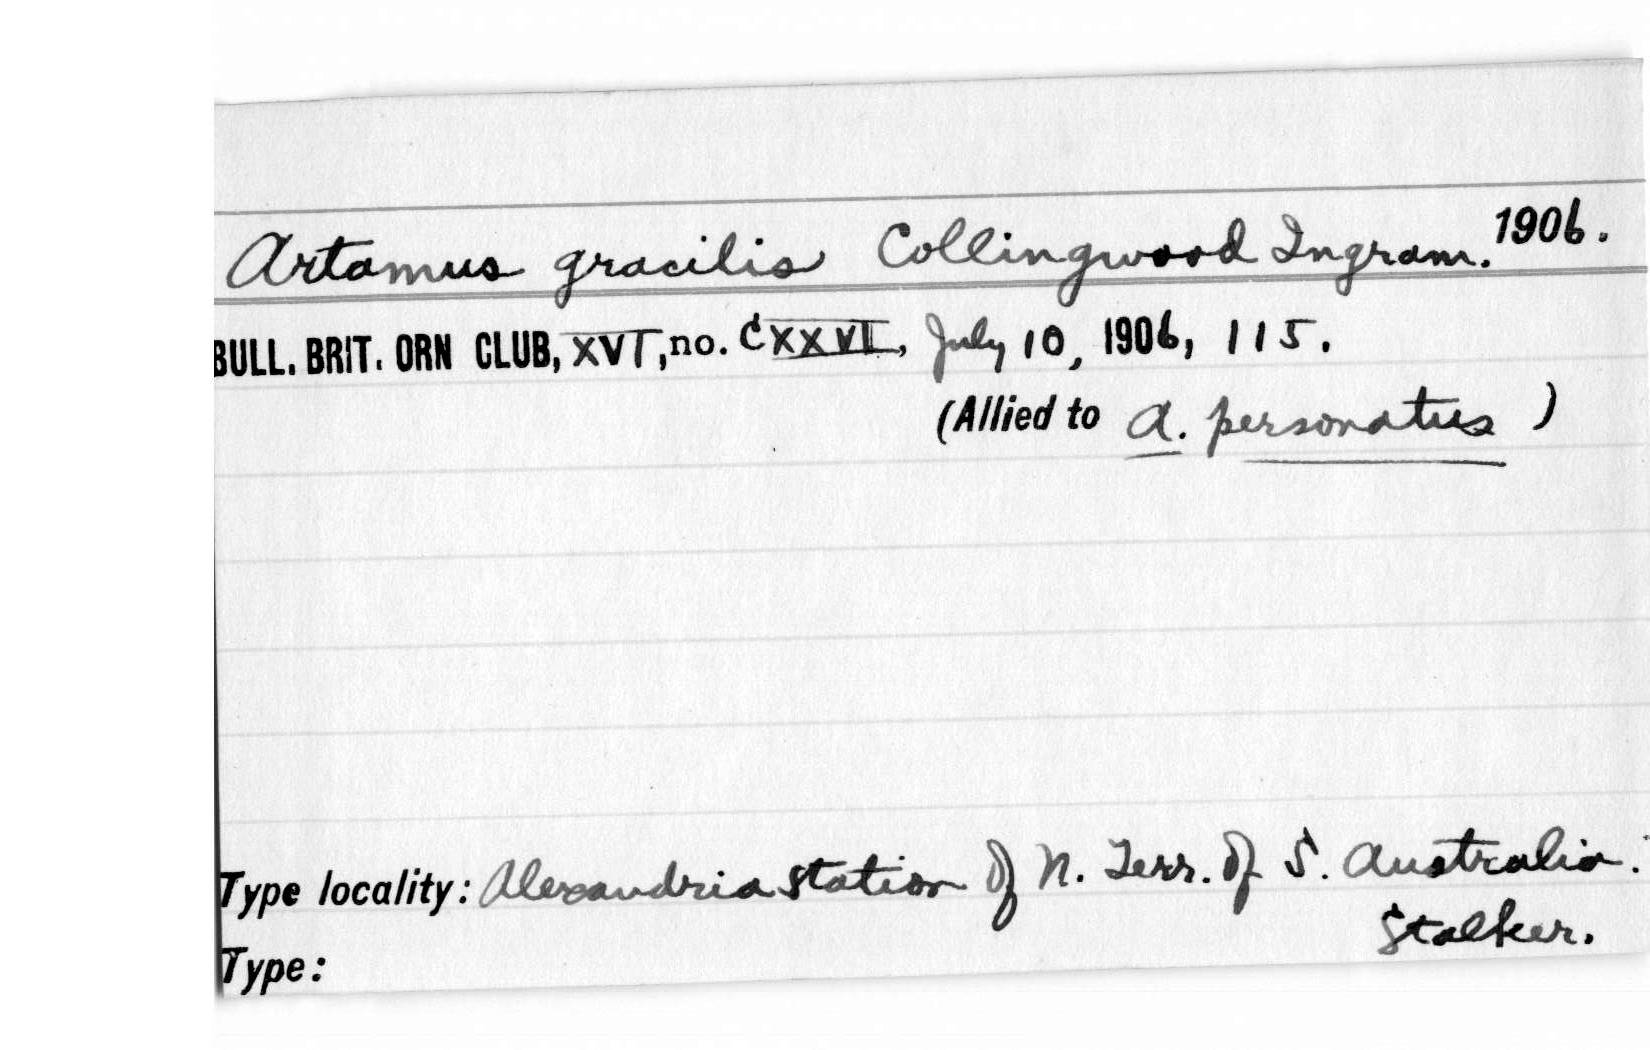 Artamus gracilis Collingwood Ingram. 1906.
BULL. BRIT. ORN CLUB, XVI, no. CXXVI, July 10, 1906, 115.
(Allied to A. personatus )
Type locality: Alexandria Station of N. Terr. of S. Australia.
Stalker.
Type: